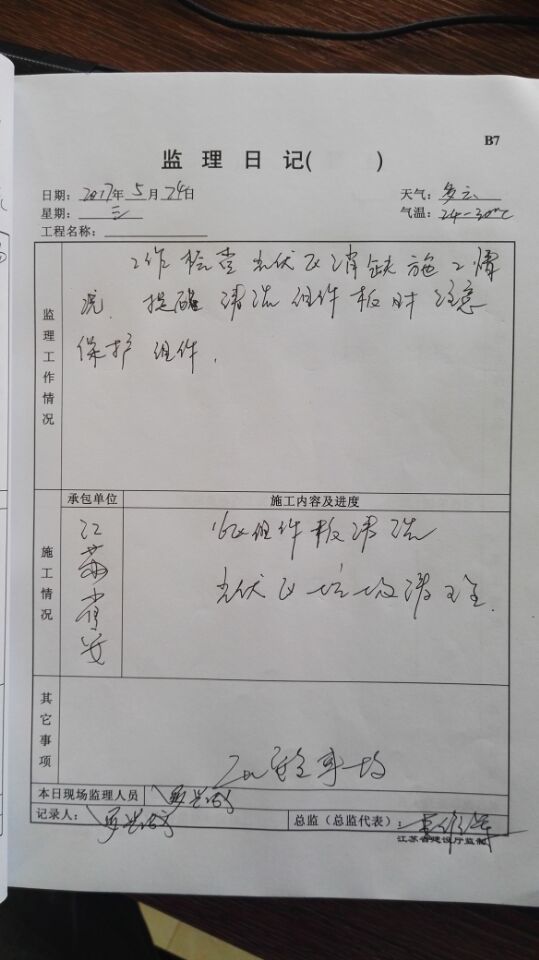 B7
监 理 日 记( )
日期: 2017年 5 月 24日
天气: 多云
星期: 三
气温: 24-30℃
工程名称:
监理工作情况
工作检查光伏区消缺施工情
况. 提醒清洗组件板时注意
保护组件.
承包单位
施工内容及进度
施工情况
江苏
安
组件板清洗
光伏区垃圾清理.
其它事项
本日现场监理人员
记录人:
总监（总监代表）:
江苏省建设厅监制